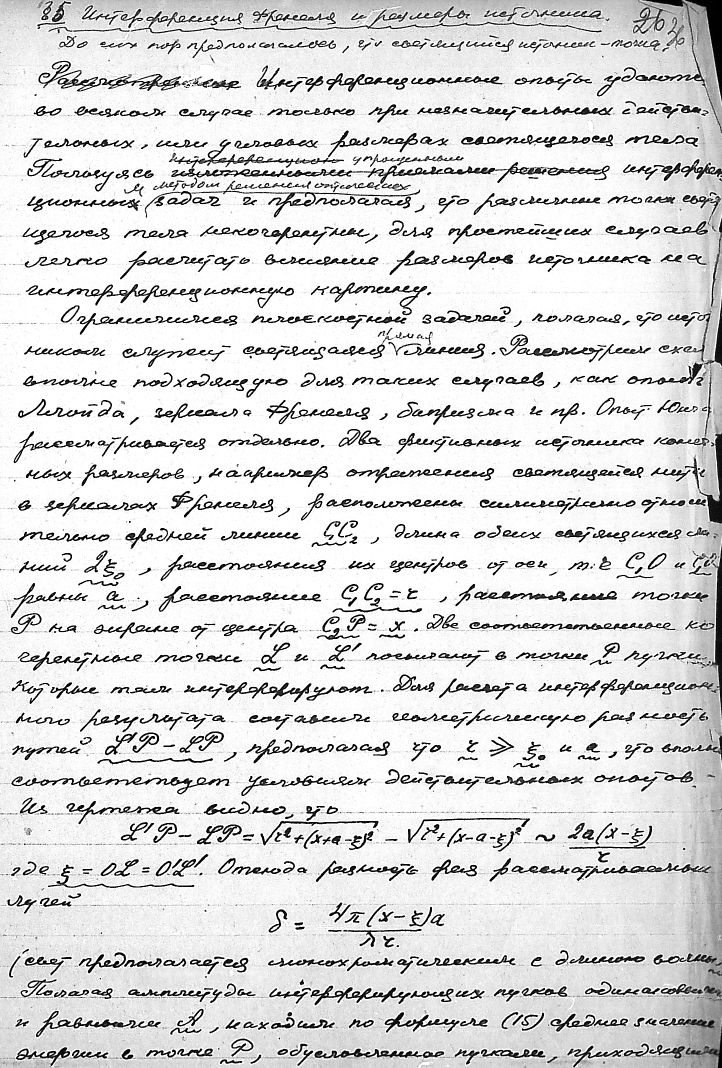 §5 Интерференция Френеля и размеры источника. 264
До сих пор предполагалось, что светящийся источник – точка.
Интерференционные опыты удаются
во всяком случае только при незначительных действи-
тельных, или угловых размерах светящегося тела
упрощенным
Пользуясь изложенными приемами решения интерферен
методом решения оптических
ционных задач и предполагая, что различные точки светя
щегося тела некогерентны, для простейших случаев
легко расчитать влияние размеров источника на
интерференционную картину.
Ограничимся плоскостной задачей, полагая, что источ
прямая
ником служит светящаяся линия. Рассмотрим схему
вполне подходящую для таких случаев, как опыт
Ллойда, зеркала Френеля, бипризма и пр. Опыт Юнга
рассматривается отдельно. Два фиктивных источника конеч-
ных размеров, например отражения светящейся нити
в зеркалах Френеля, расположены симметрично относи
тельно средней линии C₁C₂, длина обеих светящихся ли-
ний 2ξ₀, расстояния их центров от оси, т.е. C₁O и C₁O'
равны a, расстояние C₁C₂ = r, расстояние точки
P на экране от центра C₂P = x. Две соответственные ко
герентные точки L и L' посылают в точки P пучки,
которые там интерферируют. Для расчета интерференцион-
ного результата составим геометрическую разность
путей L'P – LP, предполагая что r ≫ ξ₀ и a, что вполне
соответствует условиям действительных опытов. –
Из чертежа видно, что
L'P – LP = √r²+(x+a-ξ)² – √r²+(x-a-ξ)² ~ 2a(x-ξ)/r
где ξ = OL = O'L'. Отсюда разность фаз рассматриваемых
лучей
δ = 4π(x-ξ)a/λr.
(свет предполагается монохроматическим с длиною волны λ
Полагая амплитуды интерферирующих пучков одинаковыми
и равными A, находим по формуле (15) среднее значение
энергии в точке P, обусловленное пучками, приходящими